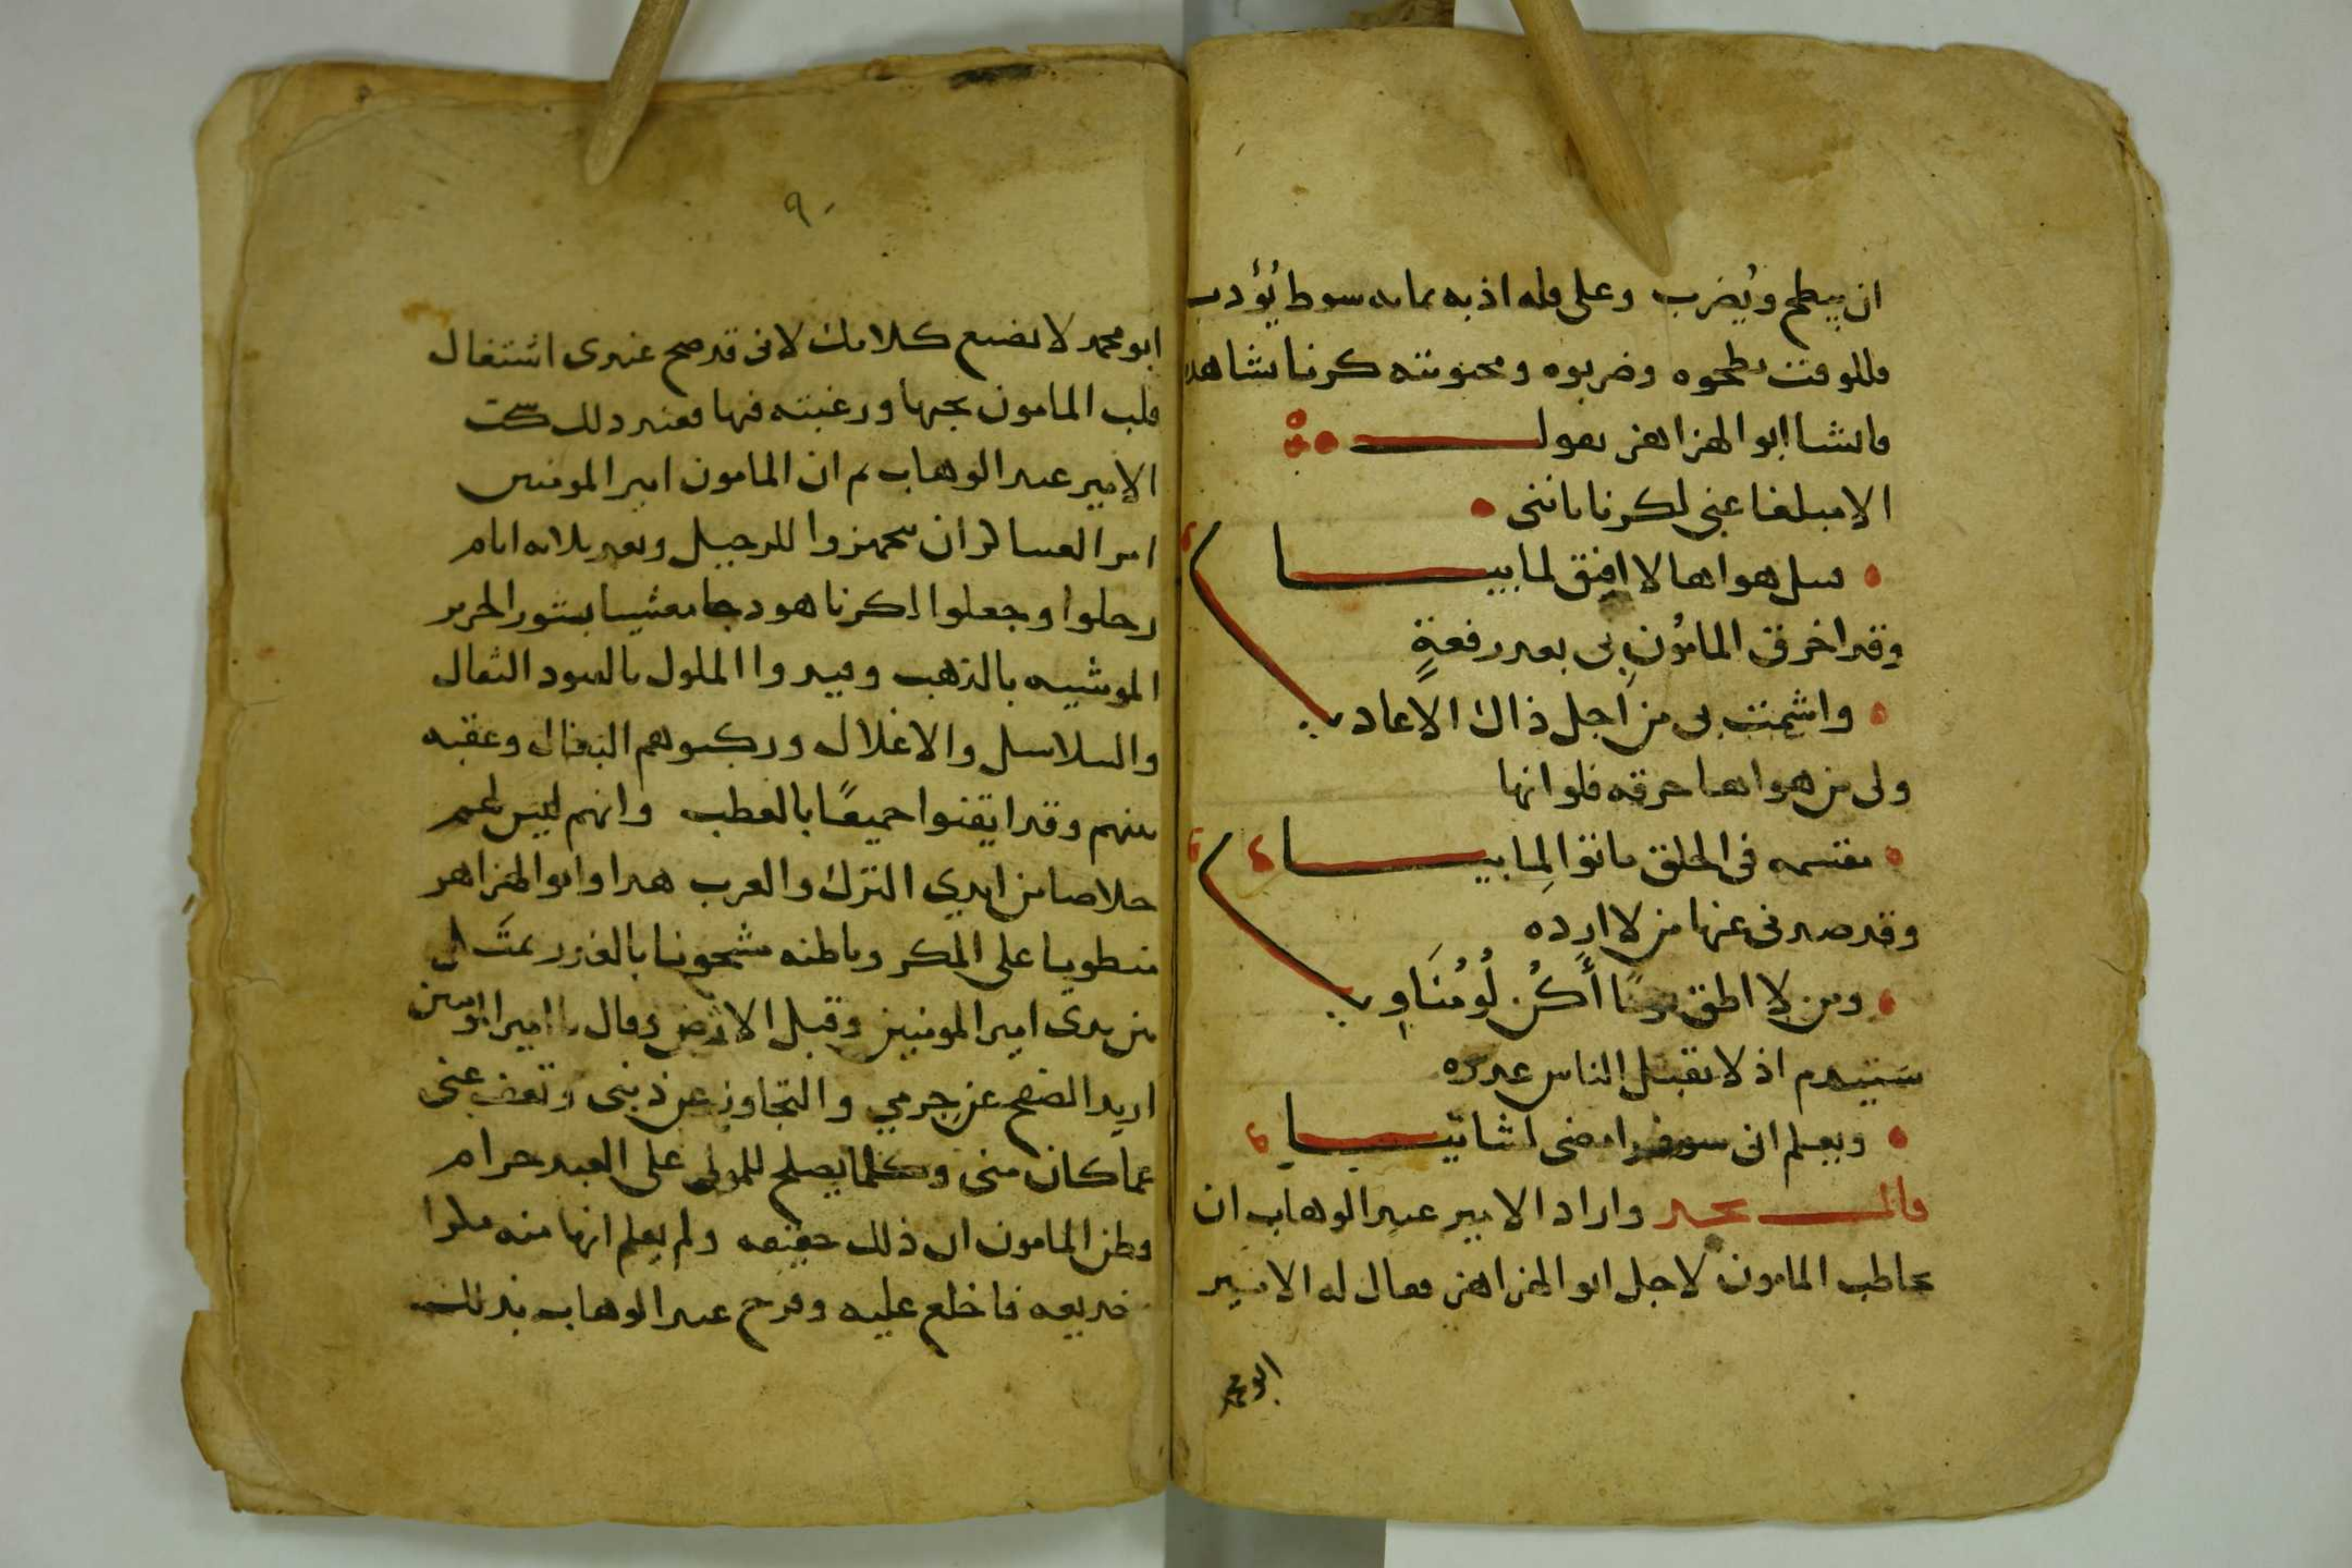 ان يبطح ويُضرب وعلى قله اذبه مايه سوط يُؤدب
فللوقت بطحوه وضربوه ومحبوبته كرنا تشاهد
فانشا ابو الهزاهز يقول
الا مبلغا عني لكرنا بانني
قتيل هواها لا افيق لما بيا
وقد اخرق المامُون بي بعد رفعةٍ
واشمت بي من اجل ذاك الاعادي
ولي من هواها حرقه فلو انها
مقسمه في الخلق ماتوا لِما بيا
وقد صدني عنها من لا ارده
ومن لا اطق يومًا أَكُن لُو مُنَاوِي
سيندم اذ لا تقبل الناس عذره
ويعلم اني سوف امضى لشانيا
قال نجد واراد الامير عبد الوهاب ان
يخاطب المامون لاجل ابو الهزاهز فقال له الامير
ابو محمد
٩٠
ابو محمد لا تضيع كلامك لاني قد صح عندي اشتغال
قلب المامون بحبها ورغبته فيها فعند ذلك سكت
الامير عبد الوهاب ثم ان المامون امير المومنين
امر العساكر ان يتجهزوا للرحيل وبعد ثلاثه ايام
رحلوا وجعلوا لكرنا هودجا مغشيا بستور الحرير
الموشيه بالذهب وقيدوا الملوك بالقيود الثقال
والسلاسل والاغلال وركبوهم البغال وعقبه
منهم وقد ايقنوا جميعًا بالعطب وانهم ليس لهم
خلاصا من ايدي الترك والعرب هدا وابو الهزاهز
منطويا على المكر وباطنه مشحونا بالغدر
من يدي امير المومنين وقبل الارض وقال يا امير المومنين
اريد الصفح عن جرمي والتجاوز عن ذنبي وتعف عني
عما كان مني وكلما يصلح للمولى على العبد حرام
وظن المامون ان ذلك حقيقه ولم يعلم انها منه مكرا
خديعه فاخلع عليه وفرح عبد الوهاب بذلك